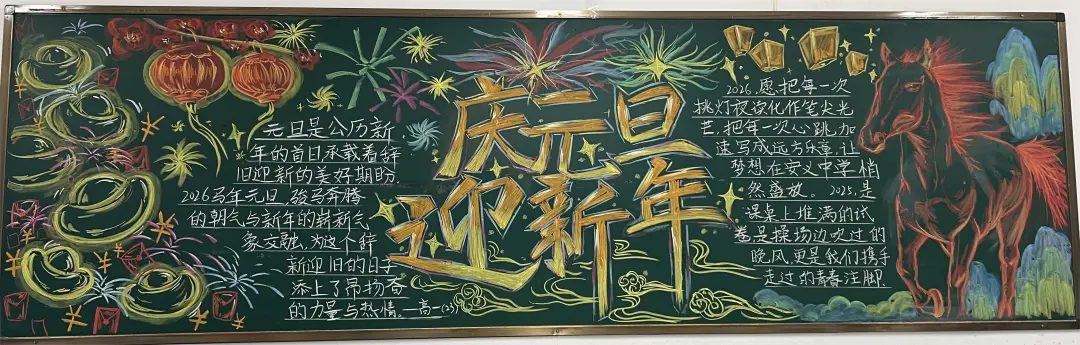 庆元旦
迎新年
元旦是公历新
年的首日承载着辞
旧迎新的美好期盼
2026马年元旦,骏马奔腾
的朝气与新年的崭新气
象交融,为这个辞
新迎旧的日子
添上了昂扬奋
的力量与热情。—高一(23)
2026,愿把每一次
挑灯夜读化作笔尖光
芒,把每一次心跳加
速写成远方乐章,让
梦想在安义中学悄
然盛放。2025,是
课桌上堆满的试
卷是操场边吹过的
晚风,更是我们携手
走过的青春注脚